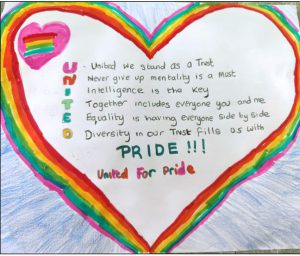 U - United we stand as a Trust
N Never give up mentality is a must
I Intelligence is the key
T Together includes everyone you and me
E Equality is having everyone side by side
D Diversity in our Trust fills us with
PRIDE !!!
United For Pride